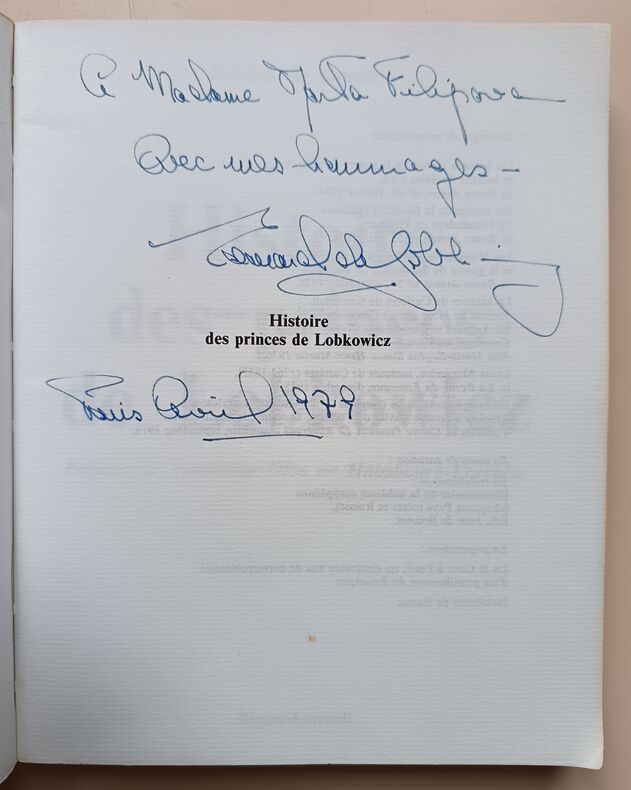 A Madame Marta Filipova
Avec mes hommages -
Histoire
des princes de Lobkowicz
Paris Avril 1979